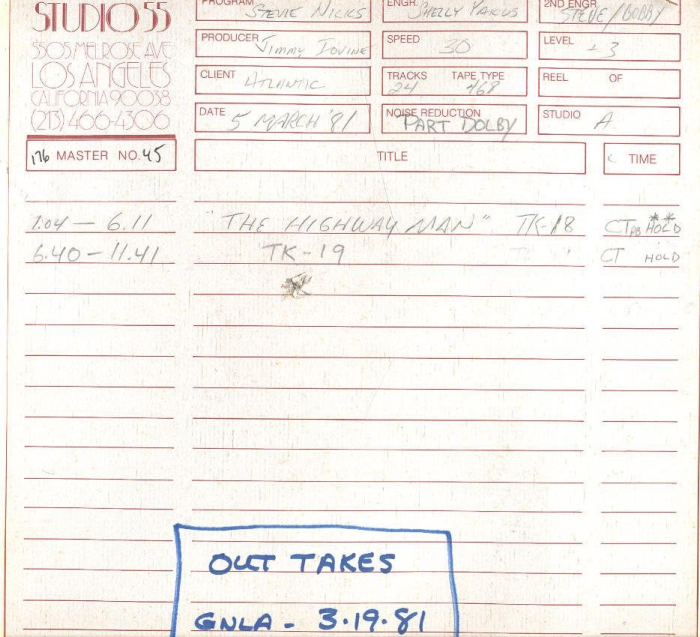 STUDIO 55
5505 MELROSE AVE
LOS ANGELES
CALIFORNIA 90038
(213) 466-4306
PROGRAM STEVIE NICKS
ENGR. SHELLY YAKUS
2ND ENGR. STEVE/BOBBY
PRODUCER JIMMY IOVINE
SPEED 30
LEVEL +3
CLIENT ATLANTIC
TRACKS 24 TAPE TYPE 468
REEL OF
DATE 5 MARCH '81
NOISE REDUCTION PART DOLBY
STUDIO A
176 MASTER NO. 45
TITLE
TIME
1.04 — 6.11 "THE HIGHWAY MAN" TK-18 CT PB HOLD **
6.40 – 11.41 TK-19 CT HOLD
OUT TAKES
GNLA - 3.19.81